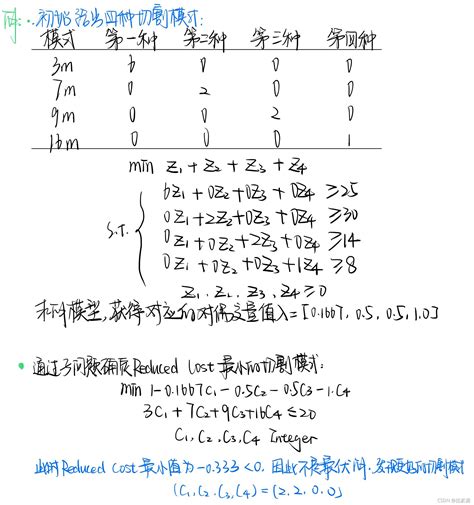 问: 初始给出四种切割模式:
模式 第一种 第二种 第三种 第四种
3m 6 0 0 0
7m 0 2 0 0
9m 0 0 2 0
16m 0 0 0 1
min Z1 + Z2 + Z3 + Z4
6Z1 + 0Z2 + 0Z3 + 0Z4 ≥25
0Z1 + 2Z2 + 0Z3 + 0Z4 ≥30
S.T. 0Z1 + 0Z2 + 2Z3 + 0Z4 ≥14
0Z1 + 0Z2 + 0Z3 + 1Z4 ≥8
Z1. Z2. Z3. Z4 ≥0
求解模型, 获得对应的对偶变量值λ=[0.1667, 0.5, 0.5, 1.0]
• 通过子问题确定Reduced Cost最小的切割模式:
min 1-0.1667C1-0.5C2-0.5C3-1.C4
3C1 + 7C2 + 9C3 + 16C4 ≤20
C1, C2. C3, C4 Integer
此时Reduced Cost最小值为-0.333<0. 因此不是最优 切割模式
(C1, C2. C3, C4) = (2. 2, 0. 0)